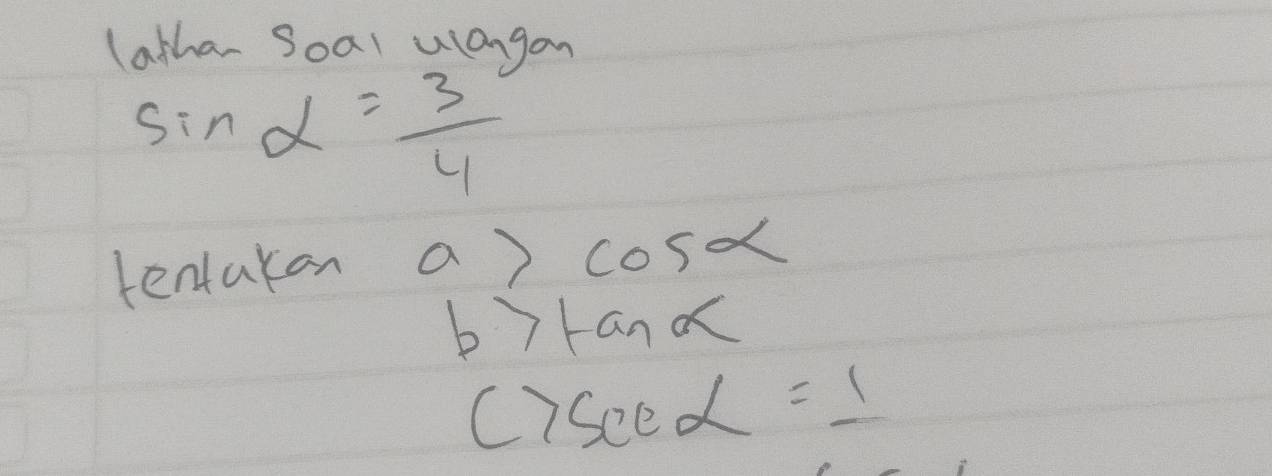 latihan soal ulangan
sin α = 3/4
tentukan a > cos α
b > tan α
c > sec α = 1